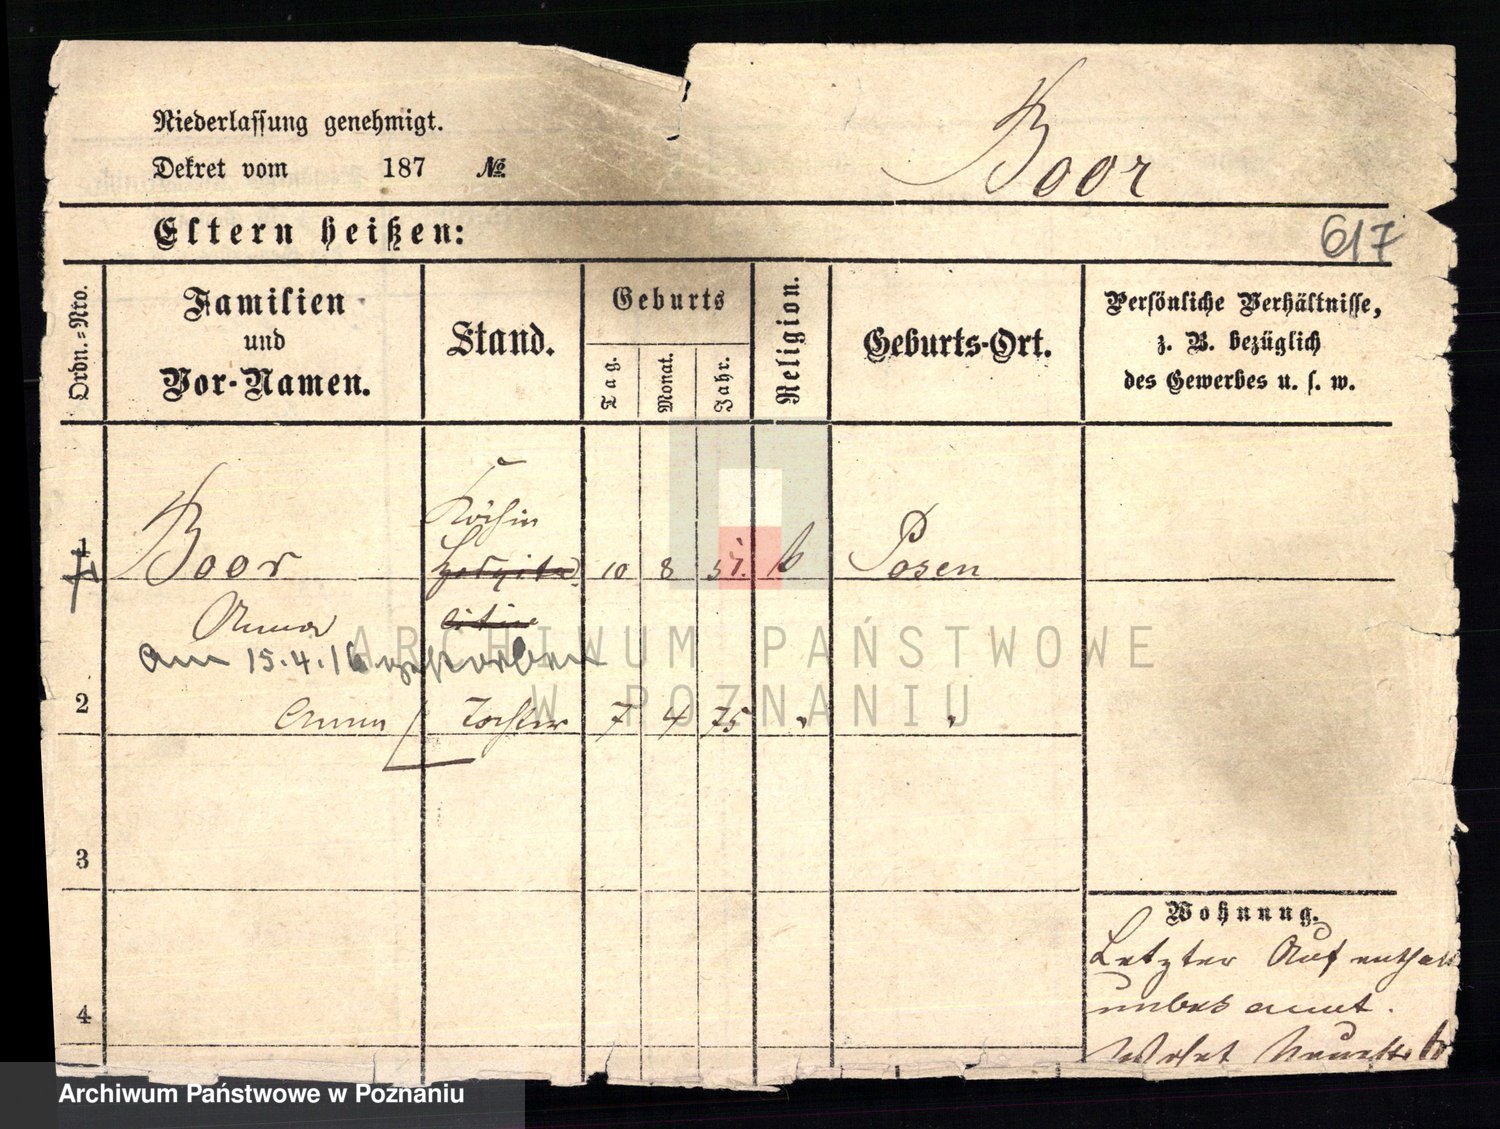 Niederlassung genehmigt.
Dekret vom 187 №
Boor
Eltern heißen:
617
Ordn.=Nro.
Familien und Vor-Namen.
Stand.
Geburts
Tag.
Monat.
Jahr.
Religion.
Geburts-Ort.
Persönliche Verhältnisse,
z. B. bezüglich
des Gewerbes u. s. w.
Köchin
1 Boor 10 8 57. Posen
Anna
am 15.4.16 gestorben
2 Anna Tochter 7 4 75 " "
3
4
Wohnung.
Letzter Aufenthalt
unbekannt.
Wohnt
ARCHIWUM PAŃSTWOWE
W POZNANIU
Archiwum Państwowe w Poznaniu